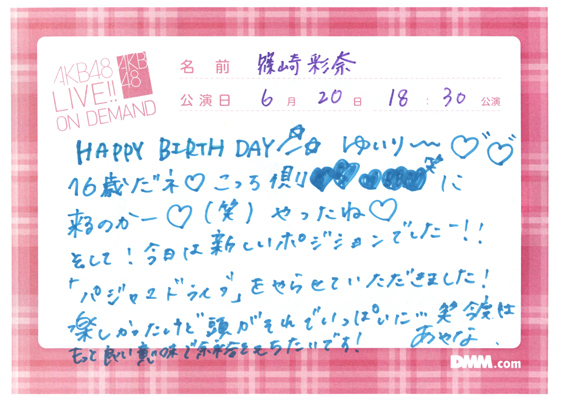 AKB48
LIVE!!
ON DEMAND
AKB
48
名前 篠崎彩奈
公演日 6月20日 18:30公演
HAPPY BIRTHDAY☆☆ ゆいり〜♡♡
16歳だネ♡こっち側に
来るのかー♡(笑)やったね♡
そして!今日は新しいポジションでしたー!!
「パジャマドライブ」をやらせていただきました!
楽しかったけど頭がそれでいっぱいに…笑 今度は
もっと良い意味で余裕をもちたいです! あやな.
DMM.com